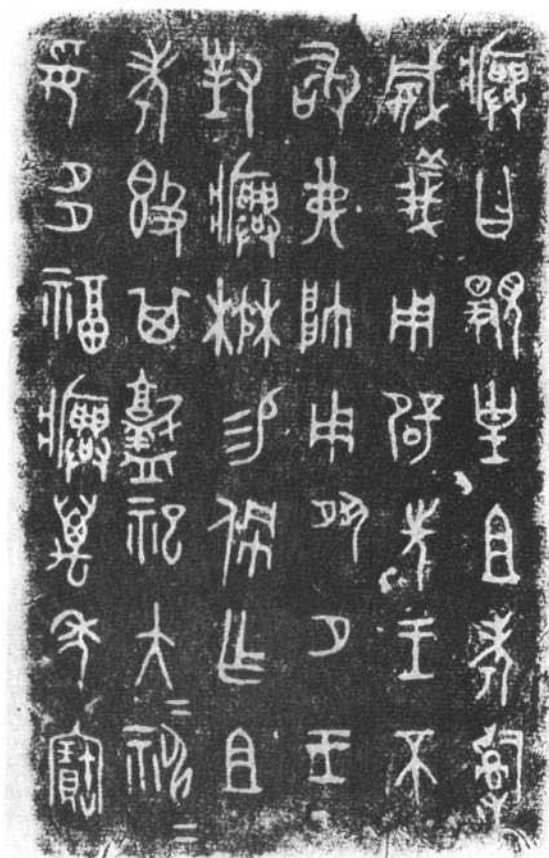 𤼈曰覭皇且考𤔲
威義用辟先王不
敢弗帥用夙夕王
對𤼈楙易佩乍且
考𣪘其𥂴祀大=神=
妥多福𤼈萬年寶